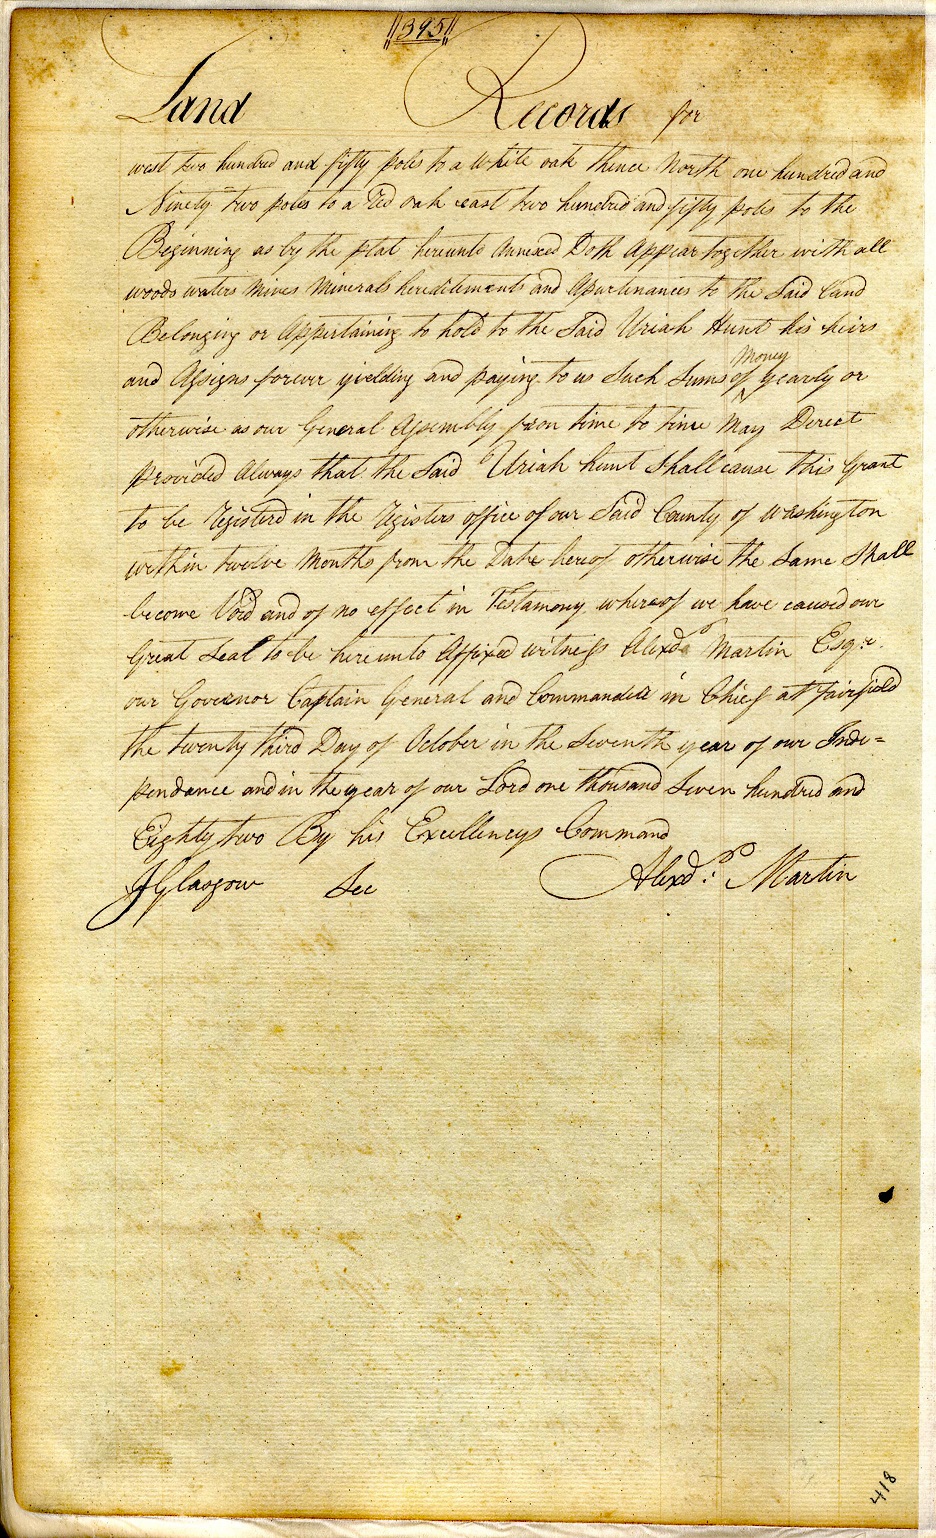 395
Land Records for
west two hundred and fifty pols to a White oak thence North one hundred and
Ninety two poles to a Red oak east two hundred and fifty poles to the
Beginning as by the plat hereunto Annexed Doth Appear together with all
woods waters mines Minerals heredetements and Apurtinances to the Said Land
Belonging or Appertaining to hold to the Said Uriah Hunt his heirs
and Assigns forever yielding and paying to us Such Sums of Money yearly or
otherwise as our General Assembly from time to time May Derect
provided Always that the Said Uriah hunt Shall cause this Grant
to be Registerd in the Registers office of our Said County of Washington
within twelve Months from the Date hereof otherwise the Same Shall
become Void and of no effect in Testamony whereof we have caused our
Great Seal to be hereunto Affixed witness Alexdr Martin Esqr.
our Governor Captain General and Commander in Chief at fairfield
the twenty third Day of October in the Seventh year of our Inde=
pendance and in the year of our Lord one thousand Seven hundred and
Eighty two By his Excellencys Command
J Glasgow Sec Alexdr. Martin
418